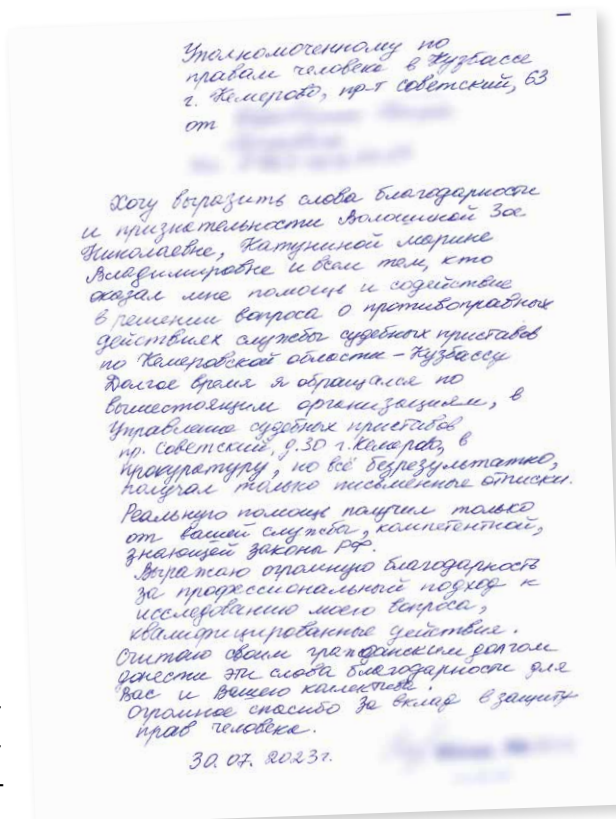 Уполномоченному по
правам человека в Кузбассе
г. Кемерово, пр-т Советский, 63
от
Хочу выразить слова благодарности
и признательности Волошиной Зое
Николаевне, Катуниной Марине
Владимировне и всем тем, кто
оказал мне помощь и содействие
в решении вопроса о противоправных
действиях службы судебных приставов
по Кемеровской области – Кузбассу
Долгое время я обращался по
вышестоящим организациям, в
Управление судебных приставов
пр. Советский, д.30 г. Кемерово, в
прокуратуру, но всё безрезультатно,
получал только письменные отписки.
Реальную помощь получил только
от вашей службы, компетентной,
знающей закона РФ.
Выражаю огромную благодарность
за профессиональный подход к
исследованию моего вопроса,
квалифицированные действия.
Считаю своим гражданским долгом
донести эти слова благодарности для
Вас и Вашего коллектива.
Огромное спасибо за вклад в защиту
прав человека.
30.07.2023г.